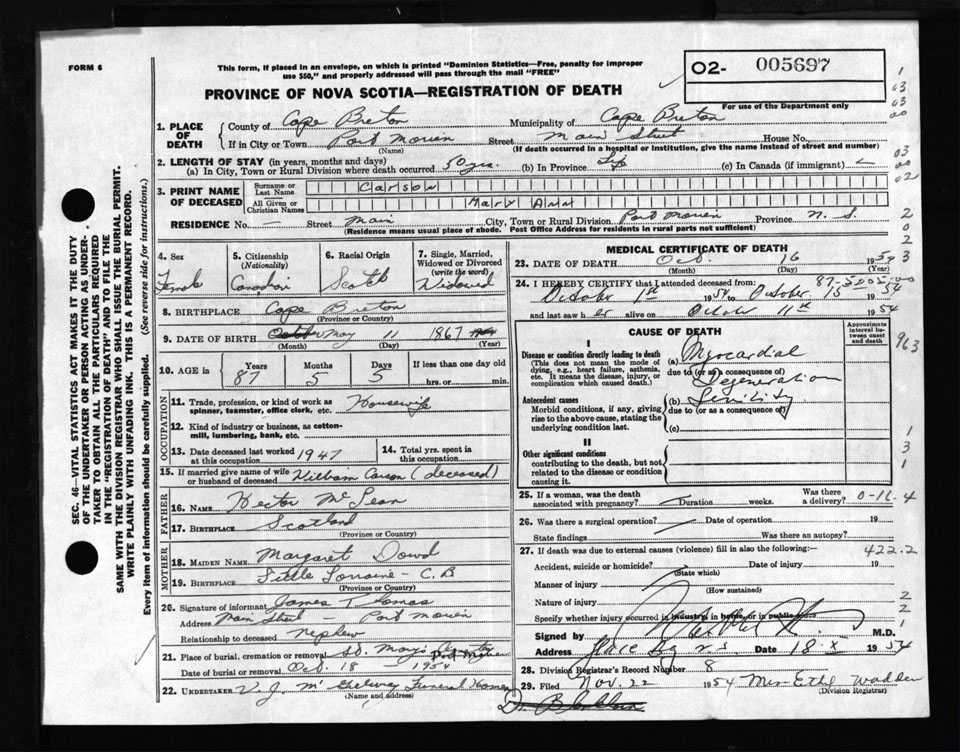 FORM 6
This form, if placed in an envelope, on which is printed "Dominion Statistics—Free, penalty for improper
use $50," and properly addressed will pass through the mail "FREE"
O2- 005697
PROVINCE OF NOVA SCOTIA—REGISTRATION OF DEATH
For use of the Department only
1. PLACE OF DEATH { County of Cape Breton Municipality of Cape Breton
If in City or Town Port Morien Street Main Street House No.
(Name) (If death occurred in a hospital or institution, give the name instead of street and number)
2. LENGTH OF STAY (in years, months and days)
(a) In City, Town or Rural Division where death occurred 50 yrs. (b) In Province Life (c) In Canada (if immigrant)
3. PRINT NAME OF DECEASED { Surname or Last Name Carson
All Given or Christian Names Mary Ann
RESIDENCE No. — Street Main City, Town or Rural Division Port Morien Province N. S.
(Residence means usual place of abode. Post Office Address for residents in rural parts not sufficient)
4. Sex Female
5. Citizenship (Nationality) Canadian
6. Racial Origin Scotch
7. Single, Married, Widowed or Divorced (write the word) Widowed
8. BIRTHPLACE Cape Breton
(Province or Country)
9. DATE OF BIRTH May 11 1867
(Month) (Day) (Year)
10. AGE in { Years 87 Months 5 Days 5 If less than one day old
hrs. or min.
OCCUPATION
11. Trade, profession, or kind of work as
spinner, teamster, office clerk, etc. Housewife
12. Kind of industry or business, as cotton-
mill, lumbering, bank, etc.
13. Date deceased last worked at this occupation 1947
14. Total yrs. spent in this occupation
15. If married give name of wife or husband of deceased William Carson (deceased)
FATHER
16. NAME Hector McLean
17. BIRTHPLACE Scotland
(Province or Country)
MOTHER
18. MAIDEN NAME Margaret Dowd
19. BIRTHPLACE Little Lorraine - C.B
(Province or Country)
20. Signature of informant James Thomas
Address Main Street — Port Morien
Relationship to deceased Nephew
21. Place of burial, cremation or removal St. Mary's Port Morien
Date of burial or removal Oct. 18 - 1954
22. UNDERTAKER V. J. McGillivray Funeral Home
(Name and address)
MEDICAL CERTIFICATE OF DEATH
23. DATE OF DEATH Oct. 16 1954
(Month) (Day) (Year)
24. I HEREBY CERTIFY that I attended deceased from:
October 1st 1954 to October 15 1954
and last saw her alive on October 11th 1954
CAUSE OF DEATH
Approximate interval between onset and death
I
Disease or condition directly leading to death
(This does not mean the mode of dying, e.g., heart failure, asthenia, etc. It means the disease, injury, or complication which caused death.)
(a) Myocardial
due to (or as a consequence of)
Degeneration
Antecedent causes
Morbid conditions, if any, giving rise to the above cause, stating the underlying condition last.
(b) Senility
due to (or as a consequence of)
(c)
II
Other significant conditions
contributing to the death, but not related to the disease or condition causing it.
25. If a woman, was the death associated with pregnancy? Duration weeks. Was there a delivery? 0-16.4
26. Was there a surgical operation? Date of operation 19
State findings Was there an autopsy?
27. If death was due to external causes (violence) fill in also the following:— 422.2
Accident, suicide or homicide? Date of injury 19
(State which)
Manner of injury
(How sustained)
Nature of injury
Specify whether injury occurred in industry, in home, or in public place
Signed by M.D.
Address Glace Bay N.S. Date 18-X 1954
28. Division Registrar's Record Number 8
29. Filed Nov. 22 1954 Mrs. Ethel Wadden
(Division Registrar)
SEC. 46—VITAL STATISTICS ACT MAKES IT THE DUTY
OF THE UNDERTAKER OR PERSON ACTING AS UNDER-
TAKER TO OBTAIN ALL THE PARTICULARS REQUIRED
IN THE "REGISTRATION OF DEATH" AND TO FILE THE
SAME WITH THE DIVISION REGISTRAR WHO SHALL ISSUE THE BURIAL PERMIT.
WRITE PLAINLY WITH UNFADING INK. THIS IS A PERMANENT RECORD.
Every item of information should be carefully supplied. (See reverse side for instructions.)